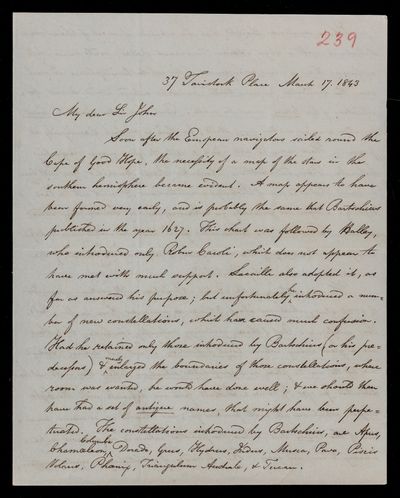 239
37 Tavistock Place March 17. 1843
My dear Sir John
Soon after the European navigators sailed round the
Cape of Good Hope, the necessity of a map of the stars in the
southern hemisphere became evident. A map appears to have
been formed very early, and is probably the same that Bartschius
published in the year 1627. This chart was followed by Halley,
who introduced only Robur Caroli, which does not appear to
have met with much support. Lacaille also adopted it, as
far as answered his purpose; but unfortunately he introduced a num-
ber of new constellations, which have caused much confusion.
Had he retained only those introduced by Bartschius (or his pre-
decessors) & merely enlarged the boundaries of those constellations, where
room was wanted, he would have done well; & we should then
have had a set of antique names, that might have been perpe-
tuated. The constellations introduced by Bartschius, are Apus,
Chamæleon, Columba, Dorado, Grus, Hydrus, Indus, Musca, Pavo, Piscis
Volans, Phœnix, Triangulum Australe, & Tucan.